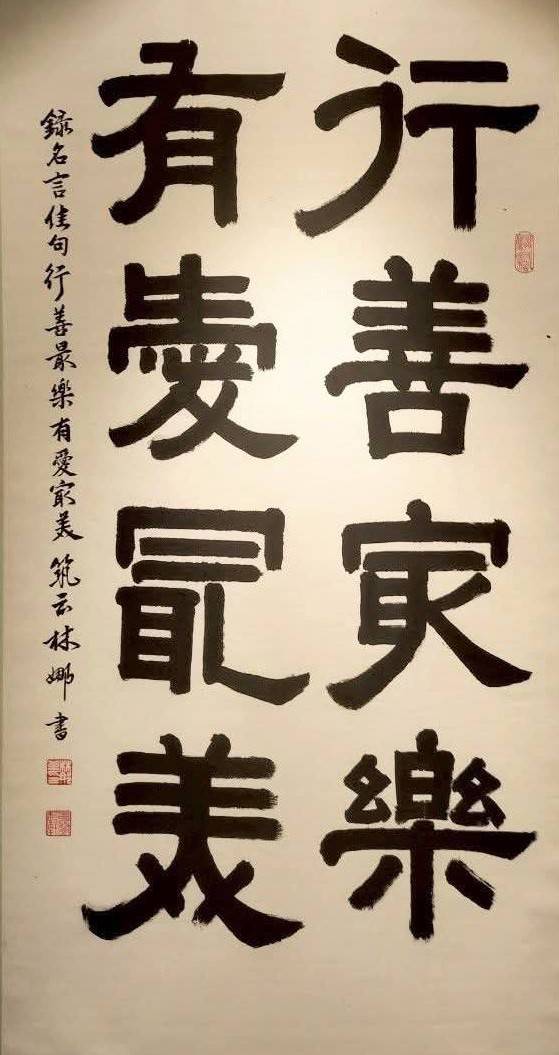 行善㝡樂
有愛冣美
錄名言佳句行善最樂有愛㝡美筑云林娜書